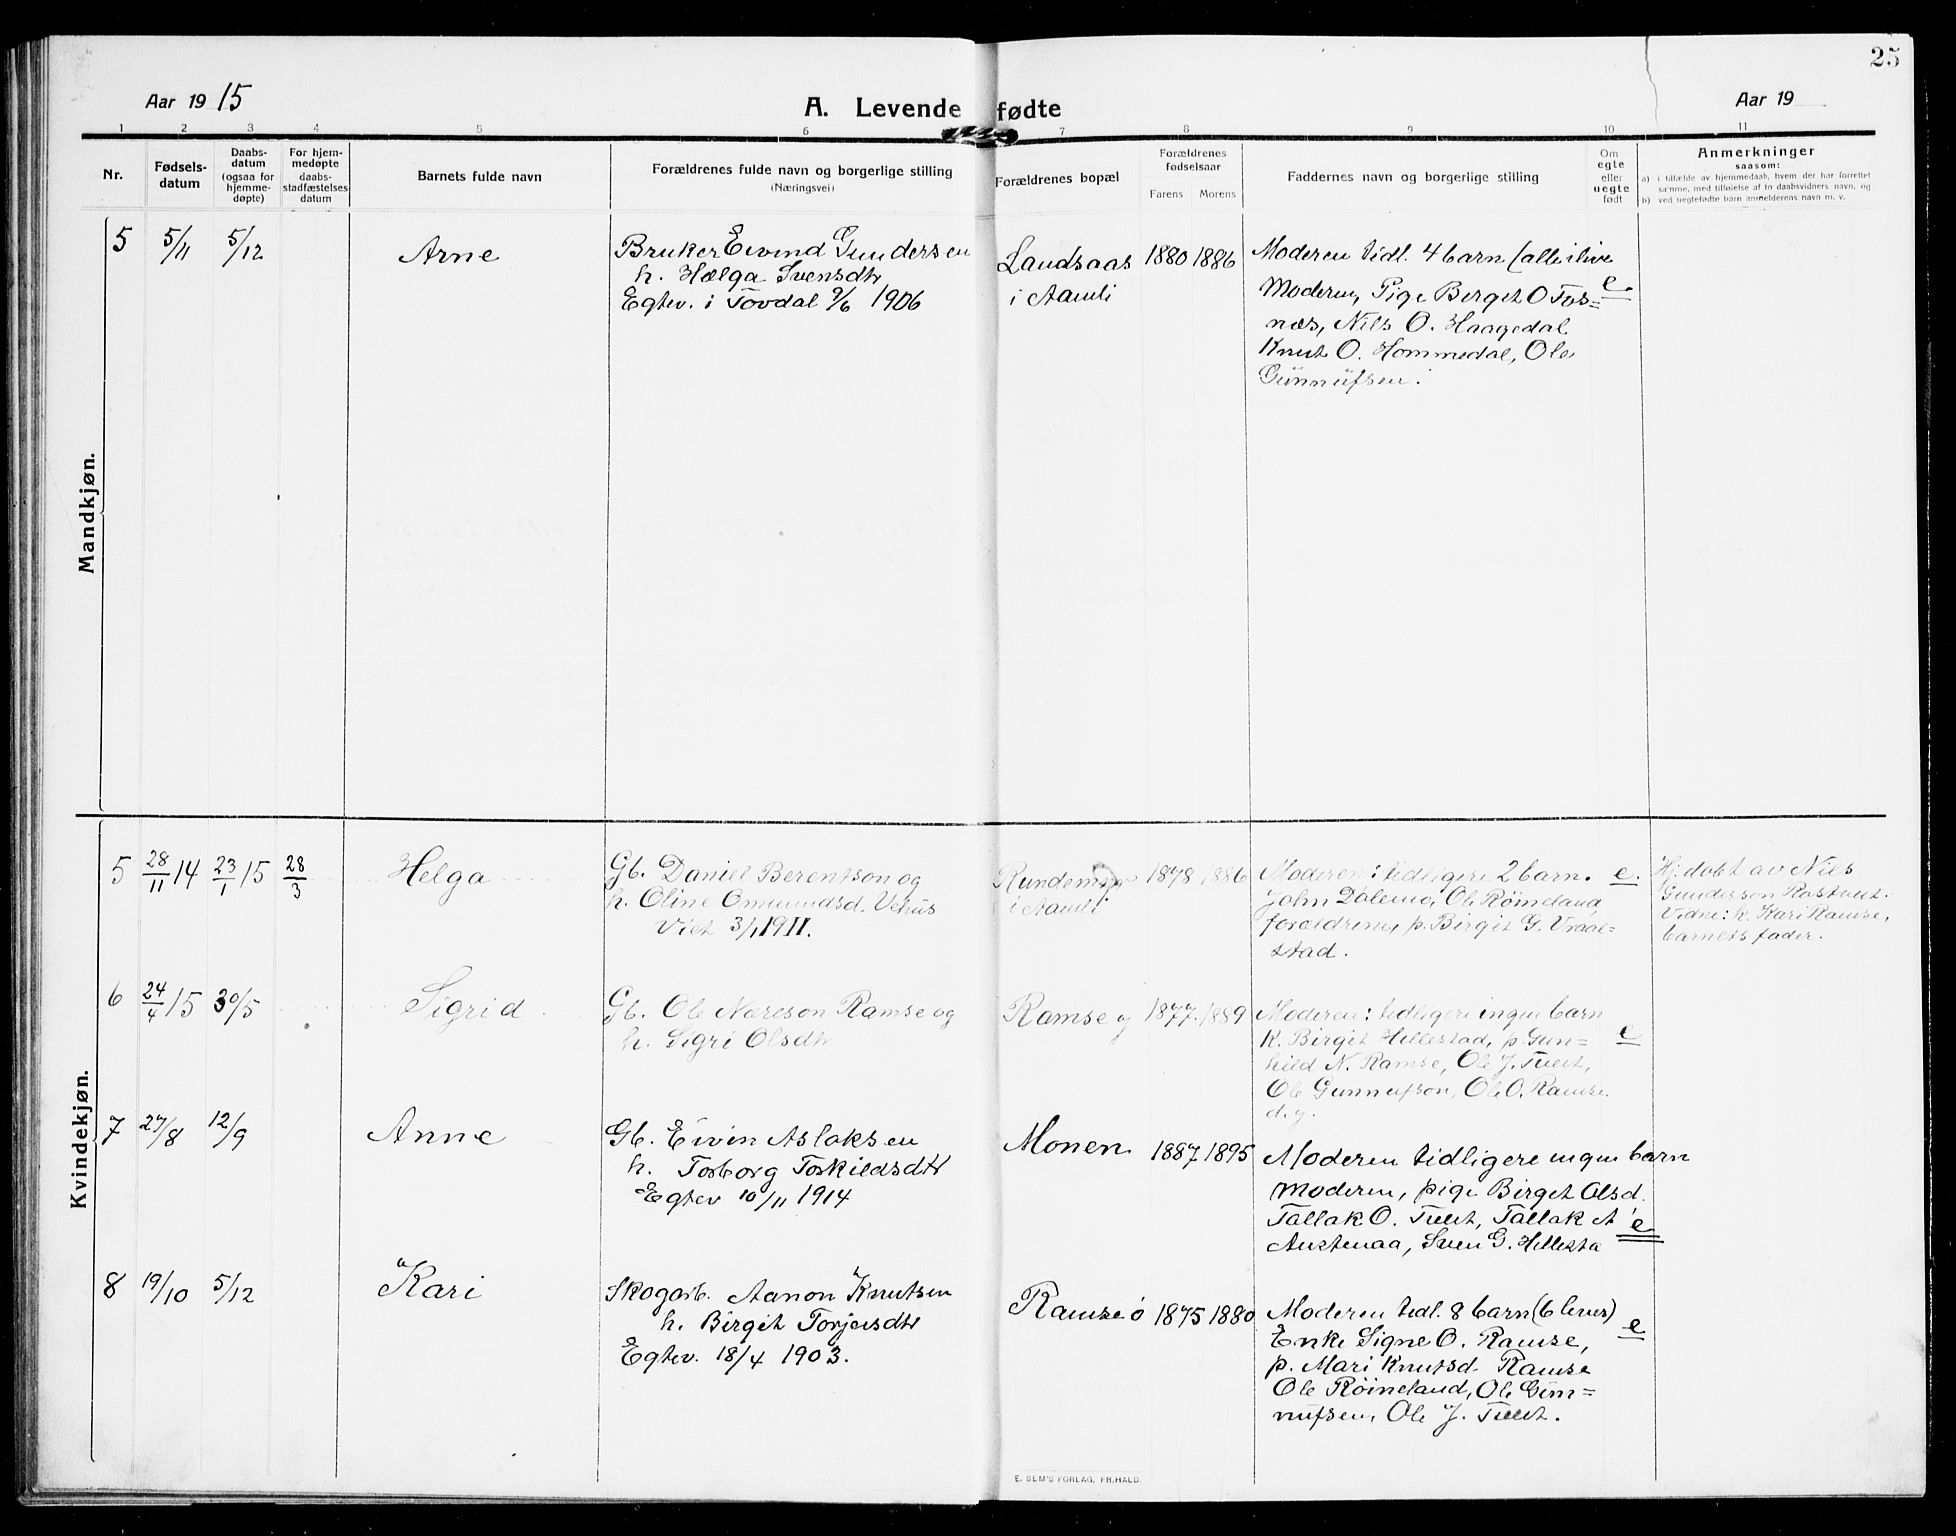 25
Aar 1915
A. Levende fødte
Aar 19
1 2 3 4 5 6 7 8 9 10 11
Nr.
Fødsels-
datum
Daabs-
datum
(ogsaa for
hjemme-
døpte)
For hjem-
medøpte
daabs-
stadfæstelses
datum
Barnets fulde navn
Forældrenes fulde navn og borgerlige stilling
(Næringsvei)
Forældrenes bopæl
Forældrenes
fødselsaar
Farens Morens
Faddernes navn og borgerlige stilling
Om
egte
eller
uegte
født
Anmerkninger
saasom:
a) i tilfælde av hjemmedaab, hvem der har forrettet
samme, med tilføielse af to daabsvidners navn, og
b) ved uegtefødte barn anmelderens navn m. v.
Mandkjøn.
5 5/11 5/12 Arne
Bruker Eivind Gundersen
h. Hælga Svensdtr
Egtev. i Tovdal 9/6 1906
Landsaas
i Aamli
1880 1886
Moderen tidl. 4 barn (alle ilive
Moderen, Pige Berget O Fos=
næs, Nils O. Haagedal
Knut O. Hommedal, Ole
Gunnufsen.
e.
Kvindekjøn.
5 28/11 14 23/1 15 28/3 Helga
Gb. Daniel Berentson og
h. Oline Omundsd. Vehus
Viet 3/1 1911.
i Aamli
1878 1886
Moderen: tidligere 2 barn.
John Dalemo, Ole Røineland
forældrene, p. Birgit G. Vraal=
stad.
e.
Hj. døbt av Nils
Gunderson Rastveit.
Vidne: k. Kari Ramse,
barnets fader.
6 24/4 15 30/5 Sigrid
Gb. Ole Nereson Ramse og
h. Sigri Olsdtr
Ramse
1877. 1889
Moderen: tidligere ingen barn
K. Birgit Hillestad, p. Gun=
hild N. Ramse, Ole J. Tveit,
Ole Gunnufson, Ole O. Ramse
d. y.
e
7 27/8 12/9 Anne
Gb. Eivin Aslaksen
h. Torborg Torkildsdtr
Egtev 10/11 1914
Monen
1887. 1895
Moderen tidligere ingen barn
Moderen, pige Birget Olsd.
Tallak O. Tveit, Tallak A
Austenaa, Sven G. Hillesta
e
8 19/10 5/12 Kari
Skogarb. Aanon Knutsen
h. Birgit Torjeisdtr
Egtev. 18/4 1903.
Ramse ø
1875 1880
Moderen tidl. 8 barn (6 lever)
Enke Signe O. Ramse,
p. Mari Knutsd. Ramse
Ole Røineland, Ole Gun=
nufsen, Ole J. Tveit.
e
E. SEM'S FORLAG, FR.HALD.